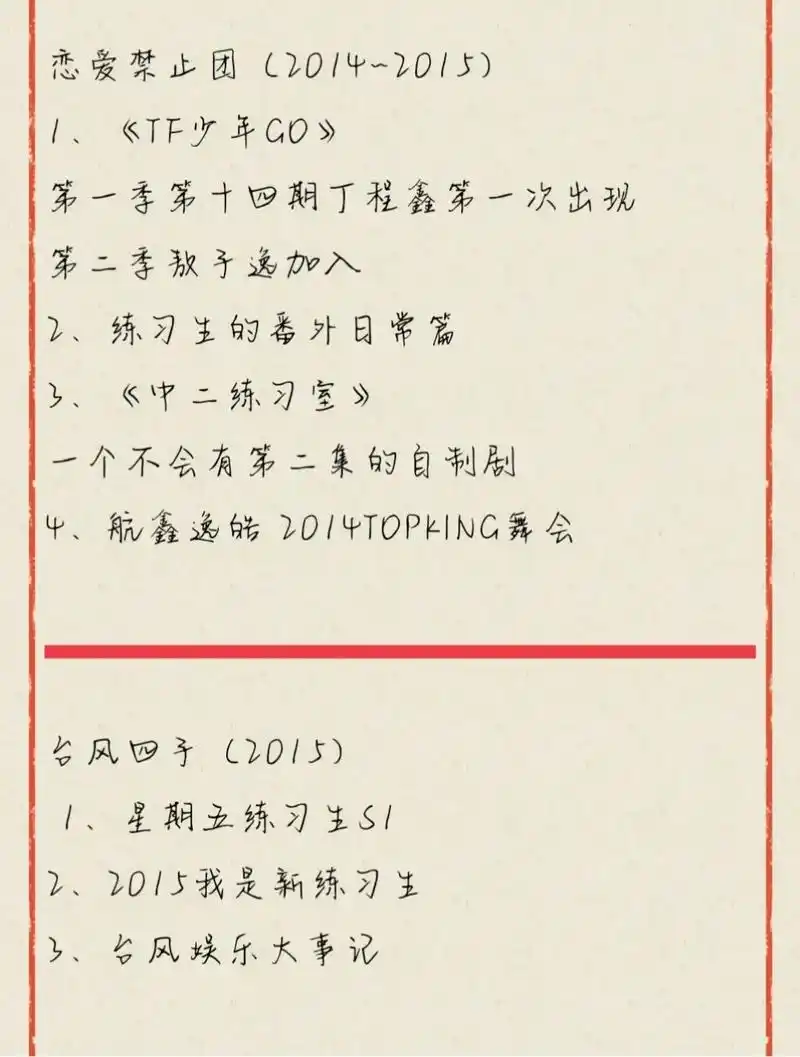 恋爱禁止团（2014~2015）
1、《TF少年GO》
第一季第十四期丁程鑫第一次出现
第二季敖子逸加入
2、练习生的番外日常篇
3、《中二练习室》
一个不会有第二集的自制剧
4、航鑫逸皓 2014TOPKING舞会
台风四子（2015）
1、星期五练习生S1
2、2015我是新练习生
3、台风娱乐大事记